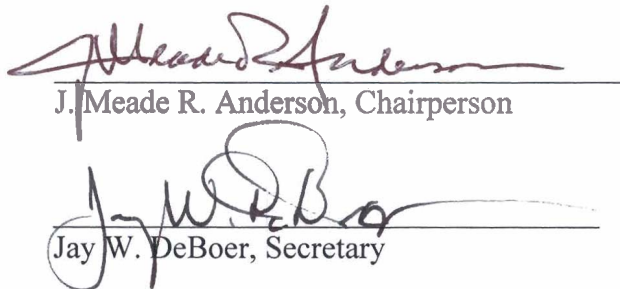 J Meade R. Anderson
J. Meade R. Anderson, Chairperson
Jay W. DeBoer
Jay W. DeBoer, Secretary